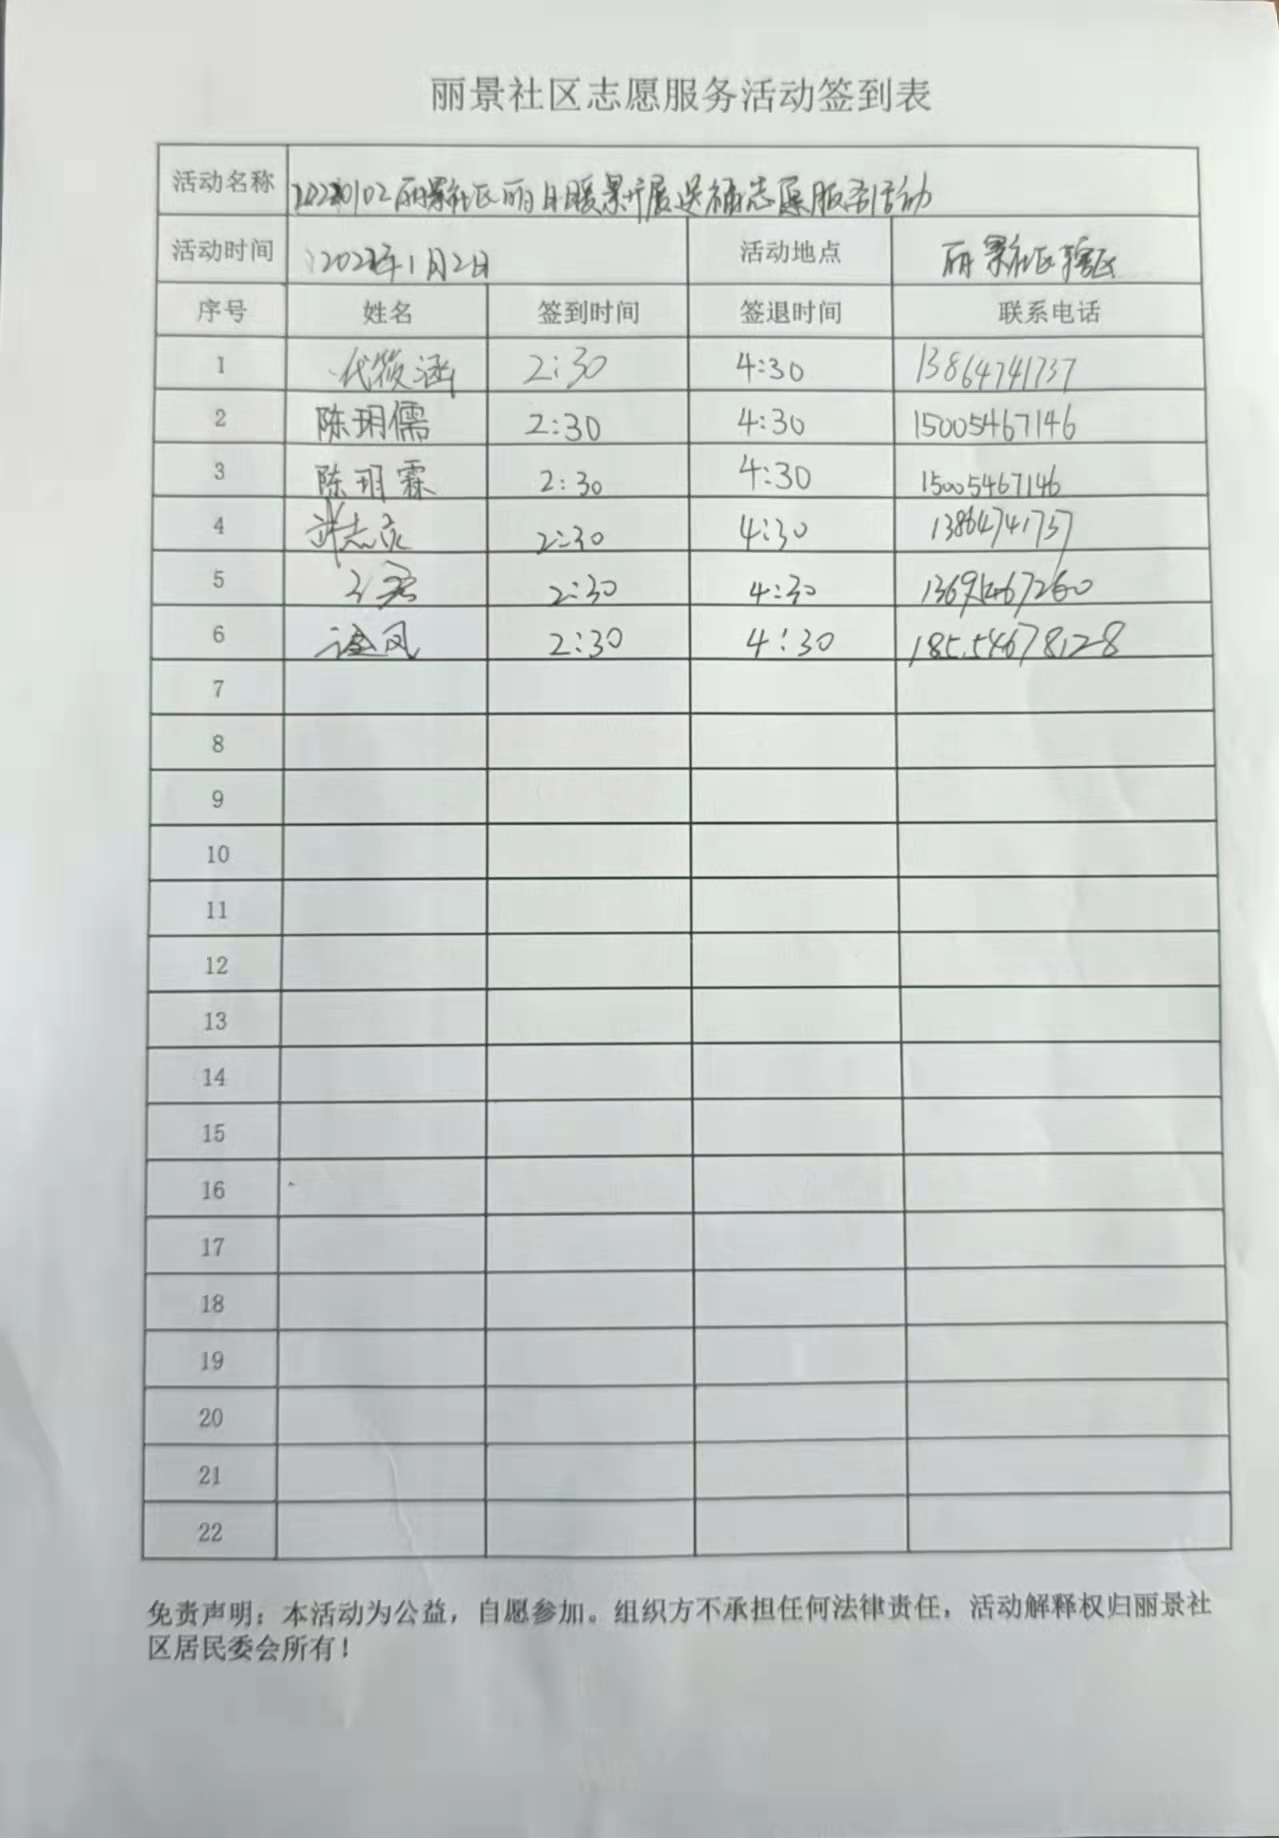 丽景社区志愿服务活动签到表
活动名称 20220102丽景社区丽日暖景开展送福志愿服务活动
活动时间 2022年1月2日 活动地点 丽景社区辖区
序号 姓名 签到时间 签退时间 联系电话
1 代筱涵 2:30 4:30 13864741737
2 陈玥儒 2:30 4:30 15005467146
3 陈玥霖 2:30 4:30 15005467146
4 志 2:30 4:30 13864741737
5 2:30 4:30 13695467260
6 凤 2:30 4:30 18554678128
7
8
9
10
11
12
13
14
15
16
17
18
19
20
21
22
免责声明：本活动为公益，自愿参加。组织方不承担任何法律责任，活动解释权归丽景社
区居民委会所有！